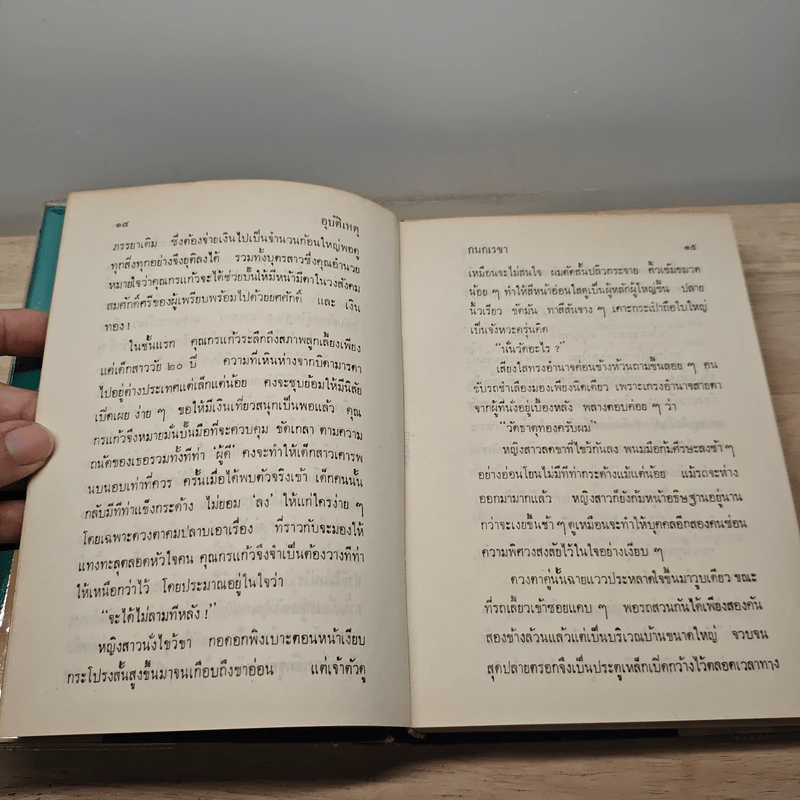 ๑๔ อุบัติเหตุ
ภรรยาเดิม ซึ่งต้องจ่ายเงินไปเป็นจำนวนก้อนใหญ่พอดู
ทุกสิ่งทุกอย่างจึงยุติลงได้ รวมทั้งบุตรสาวซึ่งคุณอำนวย
หมายใจว่าคุณกรแก้วจะได้ช่วยปั้นให้มีหน้ามีตาในวงสังคม
สมศักดิ์ศรีของผู้เพรียบพร้อมไปด้วยยศศักดิ์ และ เงิน
ทอง !
ในชั้นแรก คุณกรแก้วระลึกถึงสภาพลูกเลี้ยงเพียง
แต่เด็กสาววัย ๒๐ ปี ความที่เหินห่างจากบิดามารดา
ไปอยู่ต่างประเทศแต่เล็กแต่น้อย คงจะชุบย้อมให้มีนิสัย
เปิดเผย ง่าย ๆ ขอให้มีเงินเที่ยวสนุกเป็นพอแล้ว คุณ
กรแก้วจึงหมายมั่นปั้นมือที่จะควบคุม ขัดเกลา ตามความ
ถนัดของเธอรวมทั้งทีท่า ‘ผู้ดี’ คงจะทำให้เด็กสาวเคารพ
นบนอบเท่าที่ควร ครั้นเมื่อได้พบตัวจริงเข้า เด็กคนนั้น
กลับมีทีท่าแข็งกระด้าง ไม่ยอม ‘ลง’ ให้แก่ใครง่าย ๆ
โดยเฉพาะดวงตาคมปลาบเอาเรื่อง ที่ราวกับจะมองให้
แทงทะลุตลอดหัวใจคน คุณกรแก้วจึงจำเป็นต้องวางทีท่า
ให้เหนือกว่าไว้ โดยประมาณอยู่ในใจว่า
“จะได้ไม่ลามทีหลัง !”
หญิงสาวนั่งไขว้ขา กอดอกพิงเบาะตอนหน้าเงียบ
กระโปรงสั้นสูงขึ้นมาจนเกือบถึงขาอ่อน แต่เจ้าตัวดู
กนกเรขา ๑๕
เหมือนจะไม่สนใจ ผมตัดสั้นปลิวกระจาย คิ้วเข้มขมวด
น้อย ๆ ทำให้สีหน้าอ่อนใสดูเป็นผู้หลักผู้ใหญ่ขึ้น ปลาย
นิ้วเรียว ขัดมัน ทาสีส้มจาง ๆ เคาะกระเป๋าถือใบใหญ่
เป็นจังหวะครุ่นคิด
“นั่นวัดอะไร ?”
เสียงใสทรงอำนาจค่อนข้างห้วนถามขึ้นลอย ๆ คน
ขับรถชำเลืองมองเพียงนิดเดียว เพราะเกรงอำนาจสายตา
จากผู้ที่นั่งอยู่เบื้องหลัง พลางตอบค่อย ๆ ว่า
“วัดธาตุทองครับผม”
หญิงสาวลดขาที่ไขว้กันลง พนมมือก้มศีรษะลงช้า ๆ
อย่างอ่อนโยนไม่มีทีท่ากระด้างแม้แต่น้อย แม้รถจะห่าง
ออกมามากแล้ว หญิงสาวก็ยังก้มหน้าอธิษฐานอยู่นาน
กว่าจะเงยขึ้นช้า ๆ ดูเหมือนจะทำให้บุคคลอีกสองคนซ่อน
ความพิศวงสงสัยไว้ในใจอย่างเงียบ ๆ
ดวงตาคู่นั้นฉายแววประหลาดใจขึ้นมาวูบเดียว ขณะ
ที่รถเลี้ยวเข้าซอยแคบ ๆ พอรถสวนกันได้เพียงสองคัน
สองข้างล้วนแล้วแต่เป็นบริเวณบ้านขนาดใหญ่ จวบจน
สุดปลายตรอกจึงเป็นประตูเหล็กเปิดกว้างไว้ตลอดเวลาทาง